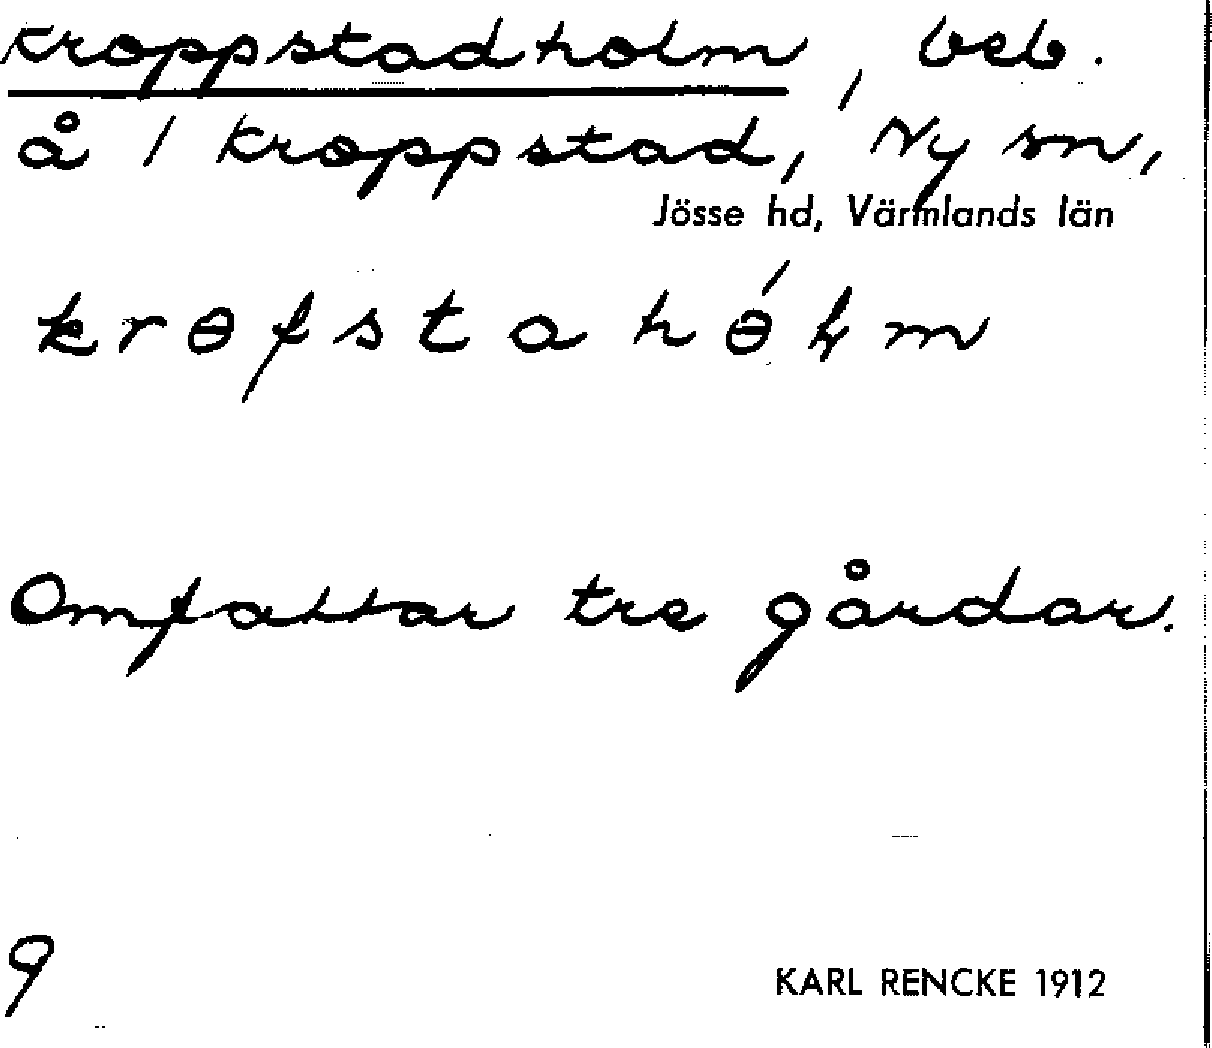 Kroppstadholm, beb.
å 1 Kroppstad, Ny sn,
Jösse hd, Värmlands län
krɵfstahɵ́ɫm
Omfattar tre gårdar.
9
KARL RENCKE 1912